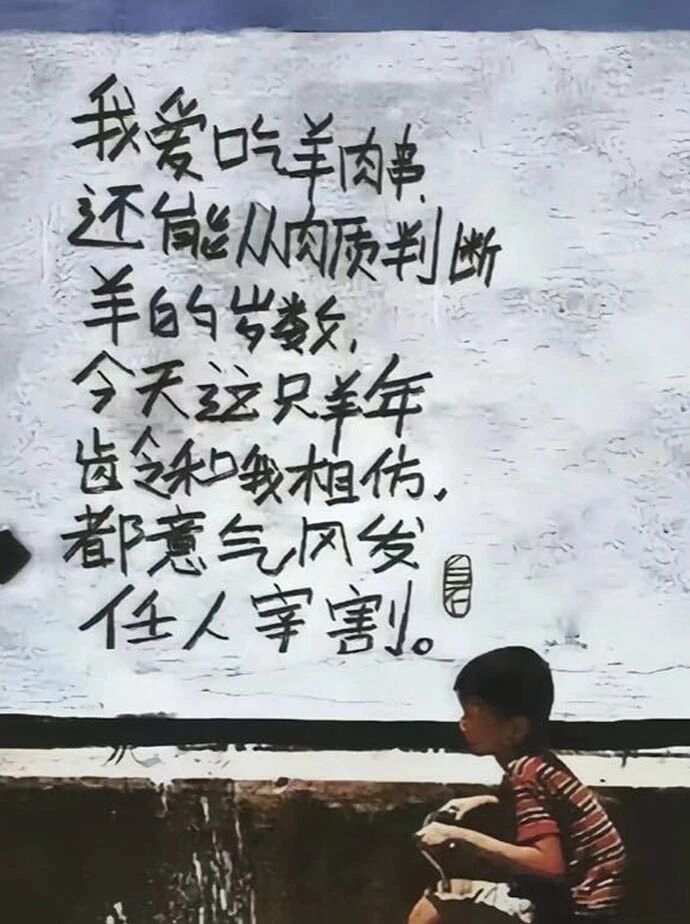 我爱吃羊肉串,
还能从肉质判断
羊的岁数,
今天这只羊年
齿令和哦相仿,
都意气风发
任人宰割。
白石